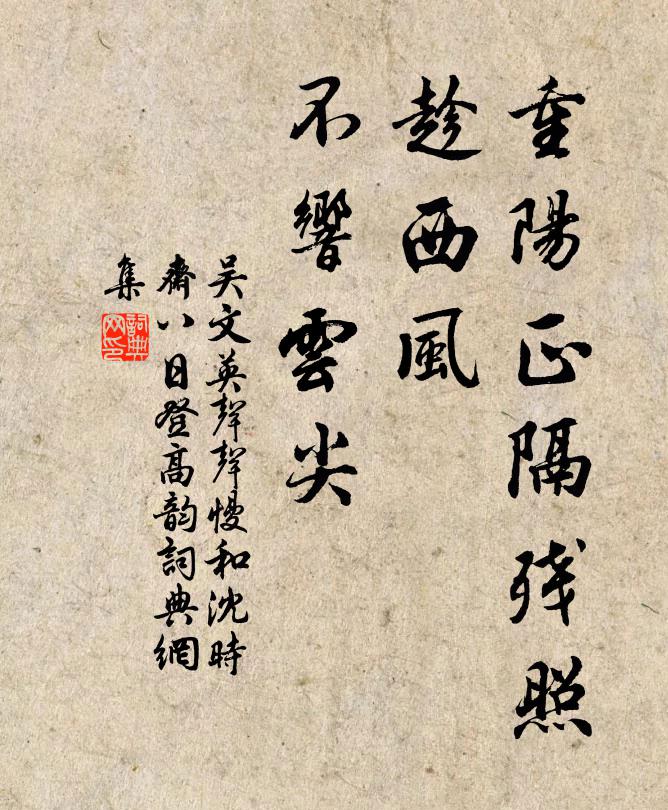 重陽正隔残照
趁西風
不響雲尖
吴文英聲聲慢和沈時
齋八日登高韵詞典網
集
詞典
网印